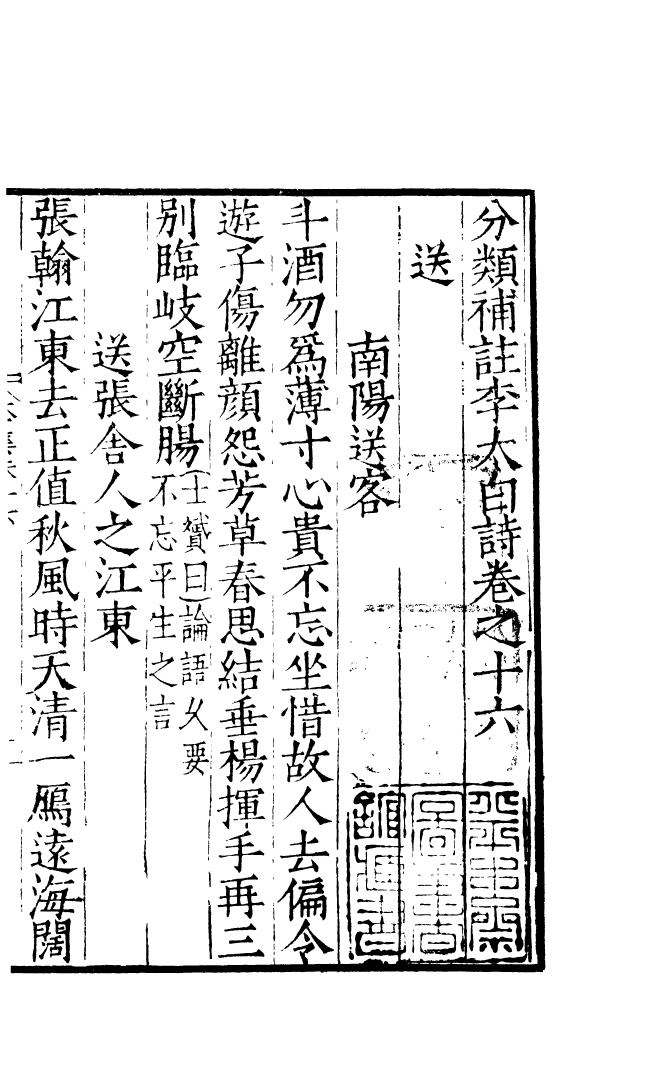 分類補註李太白詩卷之十六
送
南陽送客
斗酒勿爲薄寸心貴不忘坐惜故人去偏令
遊子傷離顔怨芳草春思結垂楊揮手再三
别臨岐空斷腸士贇曰論語久要
不忘平生之言
送張舎人之江東
張翰江東去正值秋風時天清一鴈遠海闊